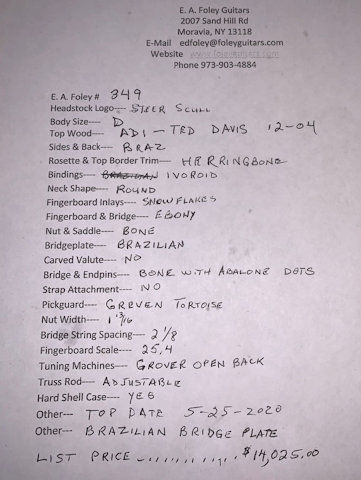 E. A. Foley Guitars
2007 Sand Hill Rd
Moravia, NY 13118
E-Mail edfoley@foleyguitars.com
Website www.foleyguitars.com
Phone 973-903-4884
E. A. Foley # 349
Headstock Logo--- STEER SCULL
Body Size--- D
Top Wood---- ADI - TED DAVIS 12-04
Sides & Back---- BRAZ
Rosette & Top Border Trim---- HERRINGBONE
Bindings---- BRAZILIAN IVOROID
Neck Shape---- ROUND
Fingerboard Inlays---- SNOWFLAKES
Fingerboard & Bridge---- EBONY
Nut & Saddle---- BONE
Bridgeplate---- BRAZILIAN
Carved Valute---- NO
Bridge & Endpins---- BONE WITH ABALONE DOTS
Strap Attachment---- NO
Pickguard---- GREVEN TORTOISE
Nut Width---- 1 13/16
Bridge String Spacing---- 2 1/8
Fingerboard Scale---- 25.4
Tuning Machines---- GROVER OPEN BACK
Truss Rod---- ADJUSTABLE
Hard Shell Case---- YES
Other--- TOP DATE 5-25-2020
Other--- BRAZILIAN BRIDGE PLATE
LIST PRICE ........... $14,025.00